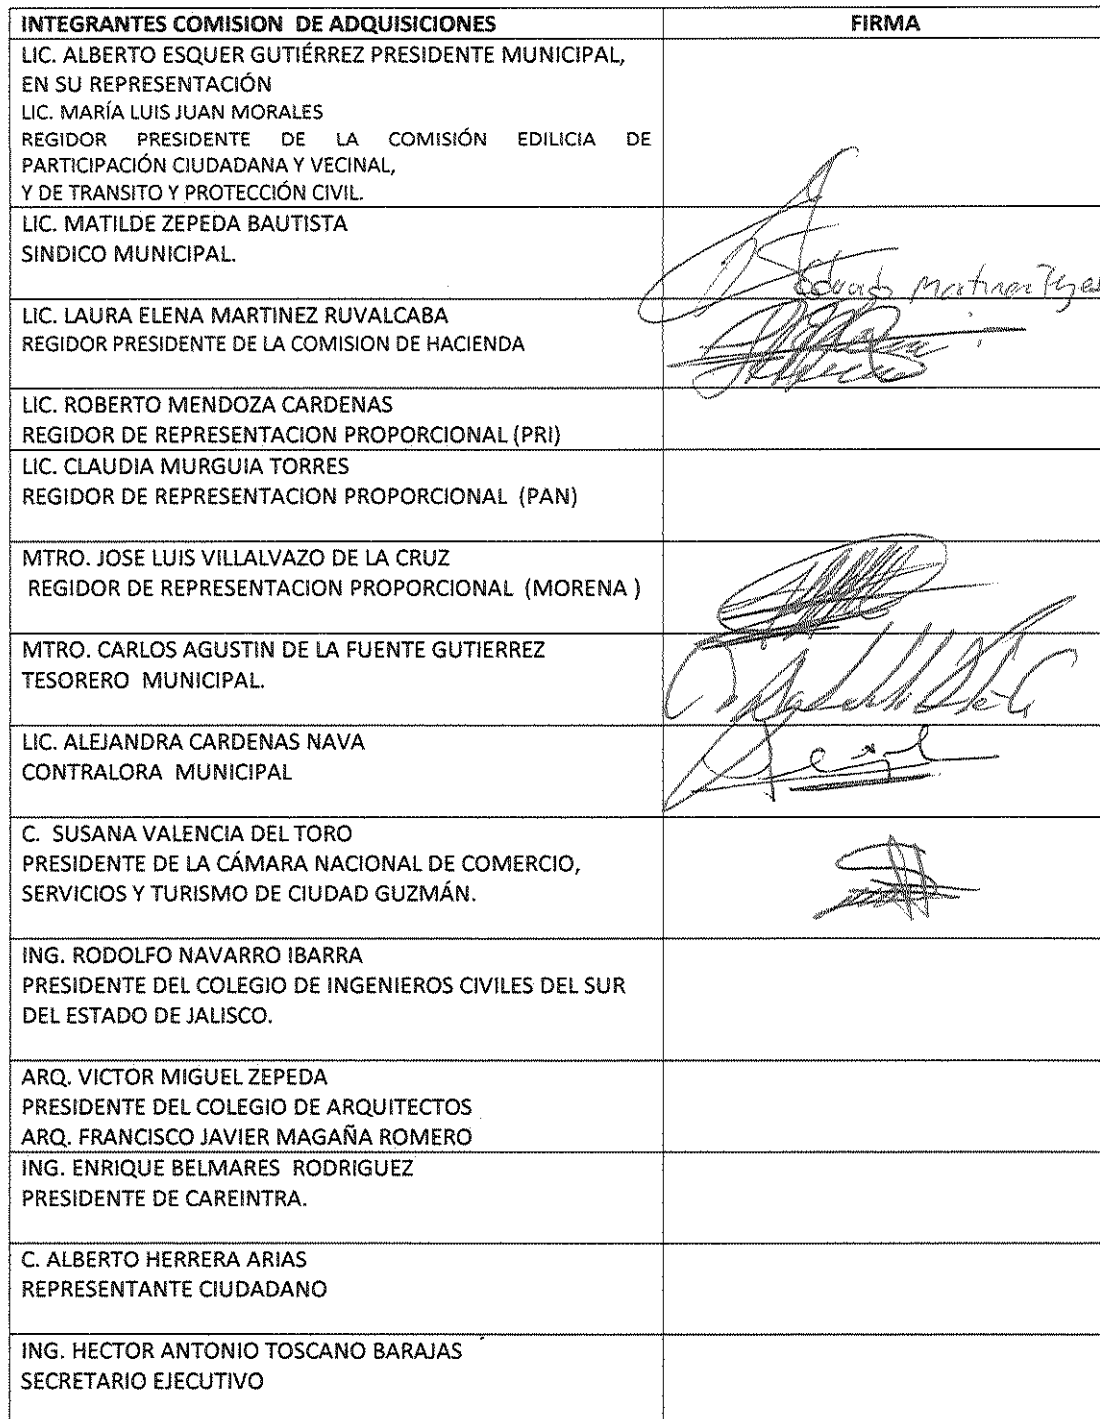 INTEGRANTES COMISION DE ADQUISICIONES
FIRMA
LIC. ALBERTO ESQUER GUTIÉRREZ PRESIDENTE MUNICIPAL,
EN SU REPRESENTACIÓN
LIC. MARÍA LUIS JUAN MORALES
REGIDOR PRESIDENTE DE LA COMISIÓN EDILICIA DE
PARTICIPACIÓN CIUDADANA Y VECINAL,
Y DE TRANSITO Y PROTECCIÓN CIVIL.
LIC. MATILDE ZEPEDA BAUTISTA
SINDICO MUNICIPAL.
LIC. LAURA ELENA MARTINEZ RUVALCABA
REGIDOR PRESIDENTE DE LA COMISION DE HACIENDA
LIC. ROBERTO MENDOZA CARDENAS
REGIDOR DE REPRESENTACION PROPORCIONAL (PRI)
LIC. CLAUDIA MURGUIA TORRES
REGIDOR DE REPRESENTACION PROPORCIONAL (PAN)
MTRO. JOSE LUIS VILLALVAZO DE LA CRUZ
REGIDOR DE REPRESENTACION PROPORCIONAL (MORENA )
MTRO. CARLOS AGUSTIN DE LA FUENTE GUTIERREZ
TESORERO MUNICIPAL.
LIC. ALEJANDRA CARDENAS NAVA
CONTRALORA MUNICIPAL
C. SUSANA VALENCIA DEL TORO
PRESIDENTE DE LA CÁMARA NACIONAL DE COMERCIO,
SERVICIOS Y TURISMO DE CIUDAD GUZMÁN.
ING. RODOLFO NAVARRO IBARRA
PRESIDENTE DEL COLEGIO DE INGENIEROS CIVILES DEL SUR
DEL ESTADO DE JALISCO.
ARQ. VICTOR MIGUEL ZEPEDA
PRESIDENTE DEL COLEGIO DE ARQUITECTOS
ARQ. FRANCISCO JAVIER MAGAÑA ROMERO
ING. ENRIQUE BELMARES RODRIGUEZ
PRESIDENTE DE CAREINTRA.
C. ALBERTO HERRERA ARIAS
REPRESENTANTE CIUDADANO
ING. HECTOR ANTONIO TOSCANO BARAJAS
SECRETARIO EJECUTIVO